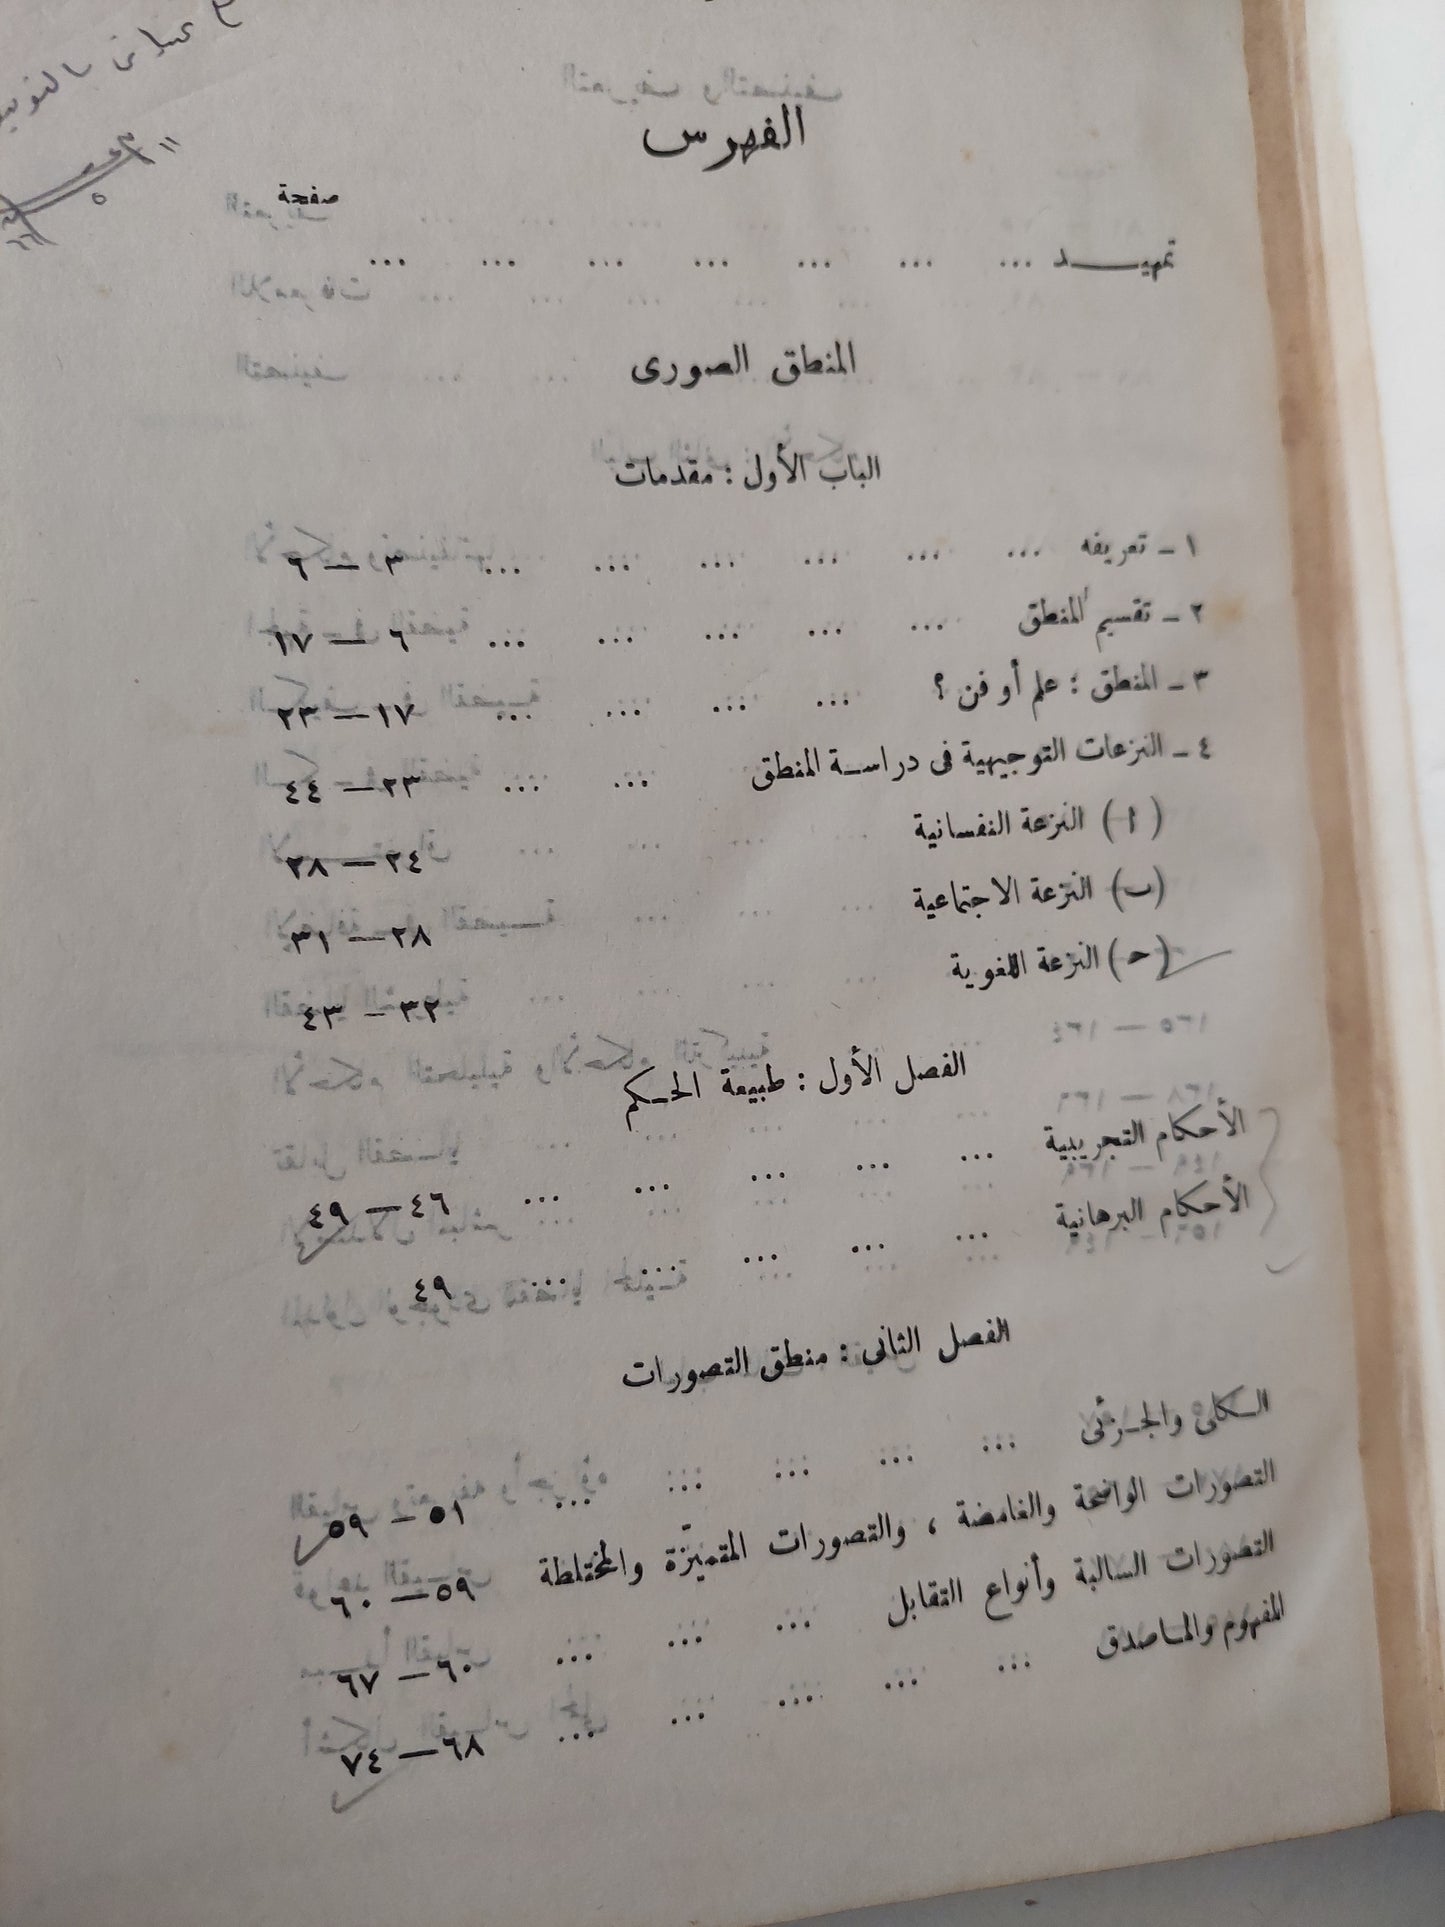 الفهرس
صفحة
تمهيــــد ... ... ... ... ... ... ...
المنطق الصورى
الباب الأول : مقدمات
١ ـ تعريفه ... ... ... ... ... ... ٣ — ٦
٢ ـ تقسيم المنطق ... ... ... ... ... ٦ — ١٧
٣ ـ المنطق : علم أو فن ؟ ... ... ... ... ١٧ — ٢٣
٤ ـ النزعات التوجيهية فى دراســة المنطق ... ... ٢٣ — ٤٤
( ا ) النزعة النفسانية ٢٤ — ٢٨
(ب) النزعة الاجتماعية ٢٨ — ٣١
(ح) النزعة اللغوية ٣٢ — ٤٣
الفصل الأول : طبيعة الحـكم
الأحكام التجريبية ... ... ... ... ... ٤٦ — ٤٩
الأحكام البرهانية ... ... ... ... ... ٤٩
الفصل الثانى : منطق التصورات
الـكلى والجـزئى ... ... ... ... ... ٥١ — ٥٩
التصورات الواضحة والغامضة ، والتصورات المتميّزة والمختلطة ٥٩ — ٦٠
التصورات السالبة وأنواع التقابل ... ... ... ٦٠ — ٦٧
المفهوم والماصدق ... ... ... ... ... ٦٨ — ٧٤